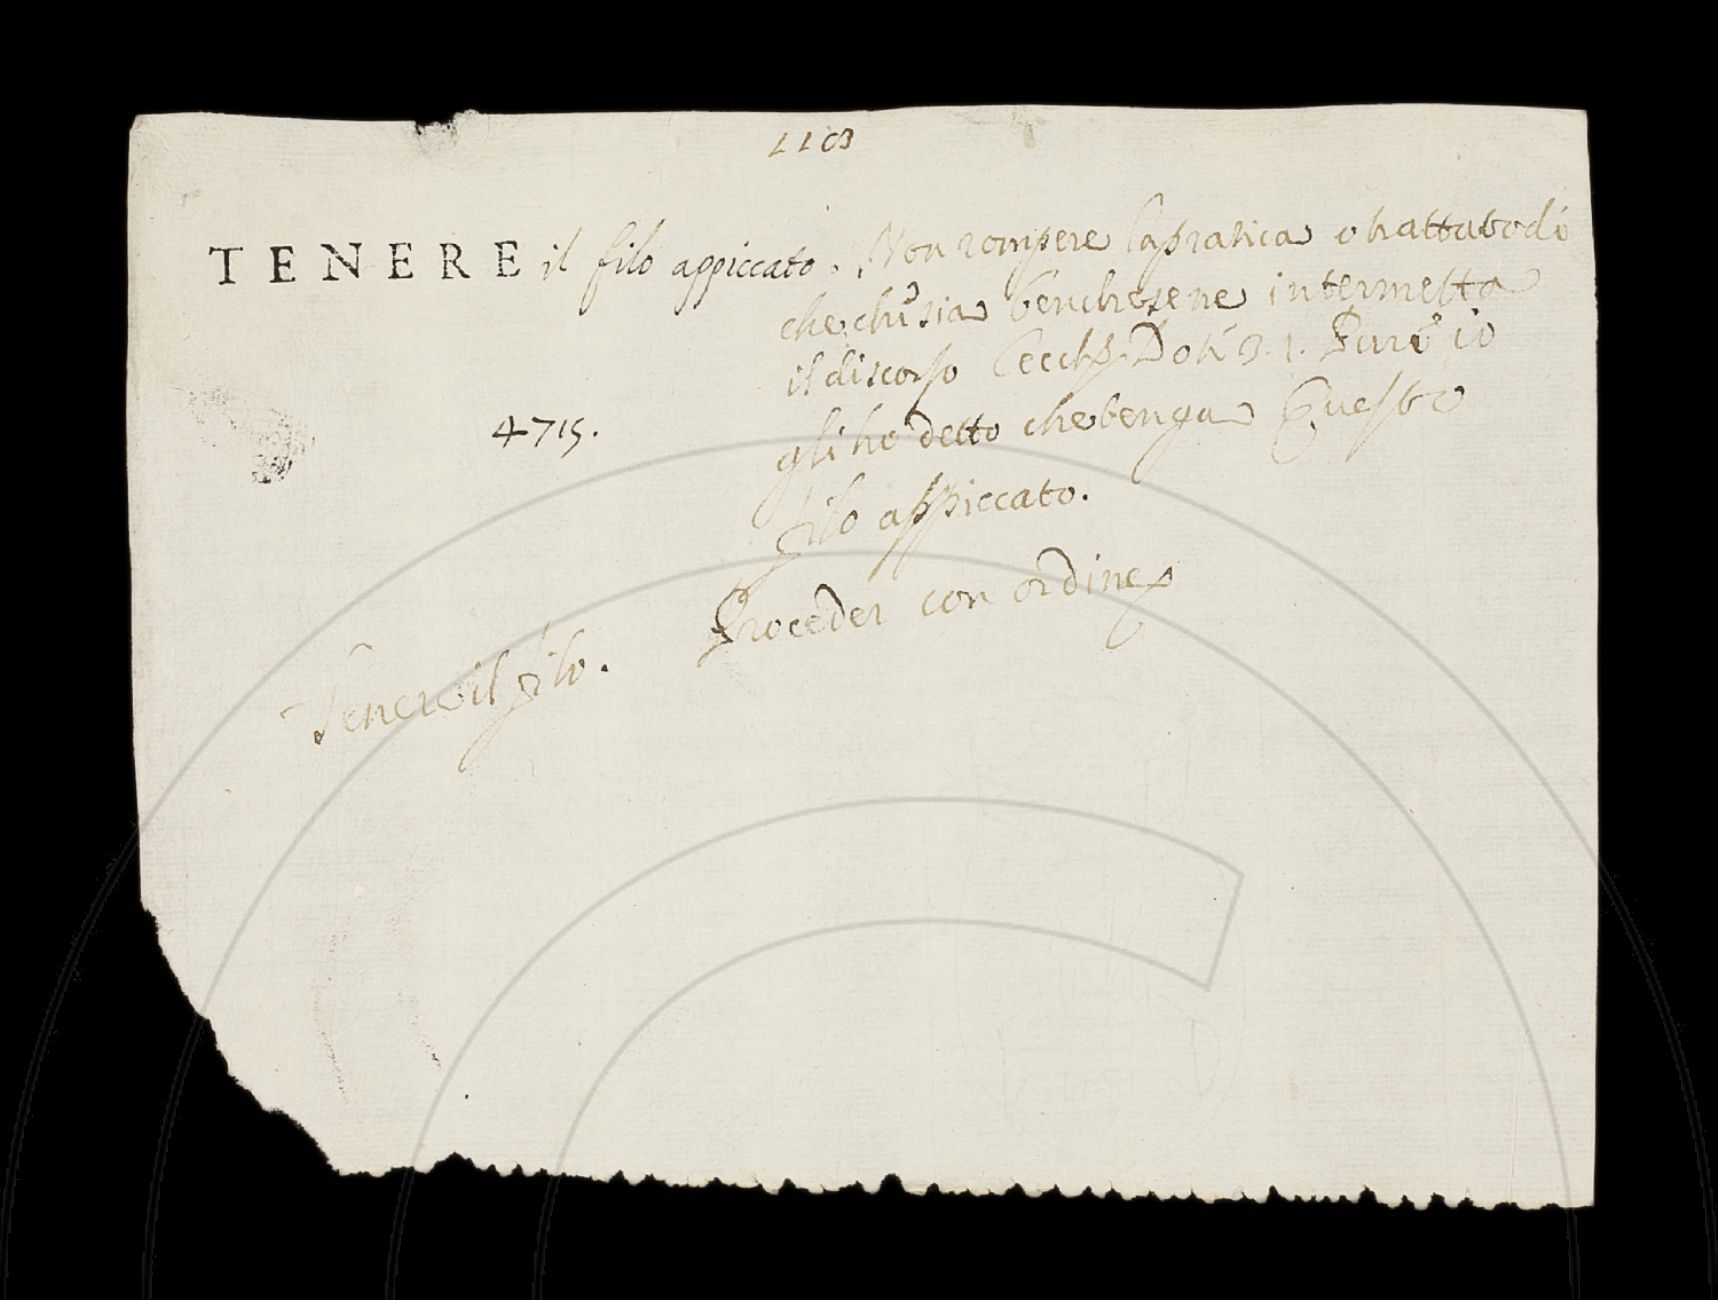 1103
TENERE il filo appiccato. Non rompere la pratica o trattato di
che chi sia benche se ne intermetta
il discorso Cecch. Doti 3. 1. Pure io
gli ho detto che tenga Questo
filo appiccato.
4715.
Proceder con ordine
Tener il filo.